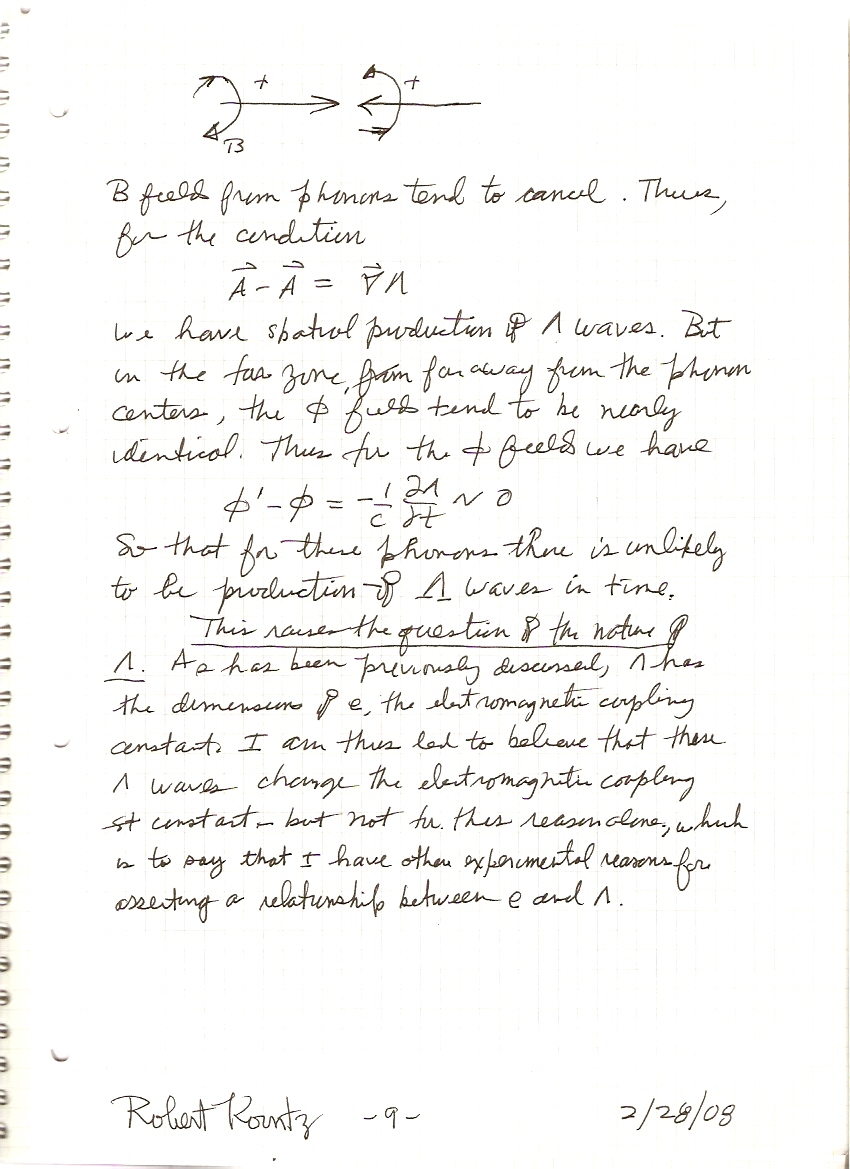 + +
B
B field from phonons tend to cancel. Thus,
for the condition
A⃗ - A⃗ = ∇⃗Λ
we have spatial production of Λ waves. But
in the far zone, from far away from the phonon
centers, the ϕ fields tend to be nearly
identical. Thus for the ϕ fields we have
ϕ' - ϕ = -1/c ∂Λ/∂t ~ 0
So that for these phonons there is unlikely
to be production of Λ waves in time.
This raises the question of the nature of
Λ. As has been previously discussed, Λ has
the dimensions of e, the electromagnetic coupling
constant. I am thus led to believe that these
Λ waves change the electromagnetic coupling
st constant - but not for this reason alone, which
is to say that I have other experimental reasons for
asserting a relationship between e and Λ.
Robert Kountz -9- 2/28/08